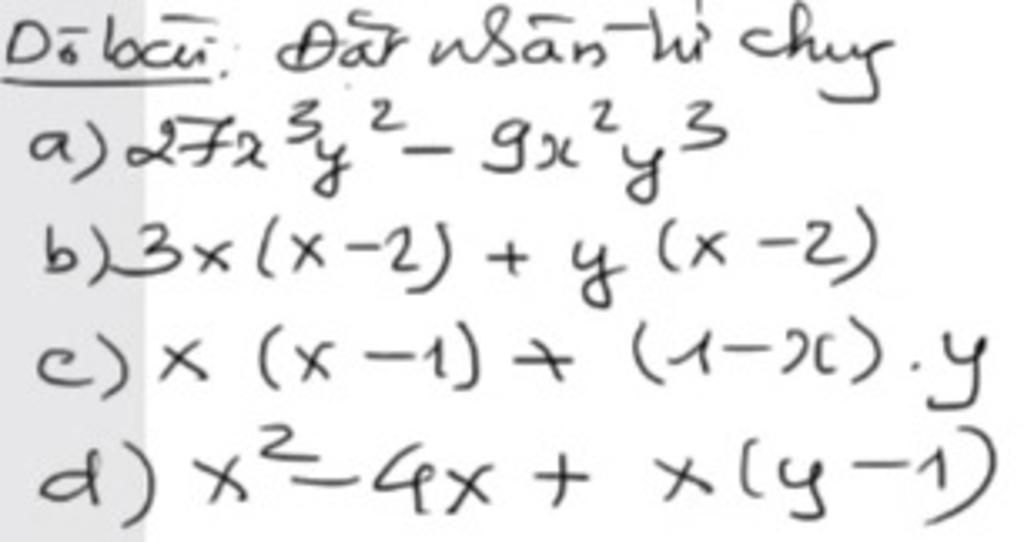 Dò bài: Đặt nhân tử chung
a) 27x³y² - 9x²y³
b) 3x(x - 2) + y(x - 2)
c) x(x - 1) + (1 - x).y
d) x² - 4x + x(y - 1)